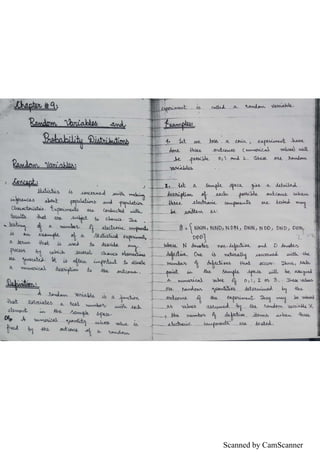 Chapter #9:
Random Variables and
Probability Distributions
Random Variables:
Concept:
Statistics is concerned with making
inferences about populations and population
characteristics. Experiments are conducted with
results that are subject to chance. The
testing of a number of electronic components
is an example of a statistical experiment,
a term that is used to describe any
process by which several chance observations
are generated. It is often important to allocate
a numerical description to the outcome.
Definition:
A random variable is a function
that associates a real number with each
element in the sample space.
Or A numerical quantity whose value is
fixed by the outcome of a random
experiment is called a random variable.
Examples:
1. Let we toss a coin, experiment have
three outcomes (numerical values) will
be possible 0, 1 and 2. These are random
variables.
2. Let a sample space give a detailed
description of each possible outcome when
three electronic components are tested may
be written as:
{NNN, NND, NDN, DNN, NDD, DND, DDN,
DDD}
where N denotes non-defective and D denotes
defective. One is naturally concerned with the
number of defectives that occur. Thus, each
point in the sample space will be assigned
a numerical value of 0, 1, 2 or 3. These values
are random quantities determined by the
outcome of the experiment. They may be viewed
as values assumed by the random variable X
, the number of defective items when three
electronic components are tested.
Scanned by CamScanner